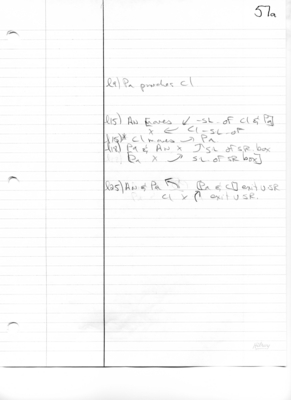 57a
l9) Pa provokes Cl
l15) An Eaves ↙ -SL. of Cl & Pa]
x ← Cl -SL. of
Cl moves → Pa
Pa & An x ↑ SL of SR box
[Pa x → SL of SR box]
l25) An & Pa ↖ [Pa & Cl] exit USR
Cl x exit USR.